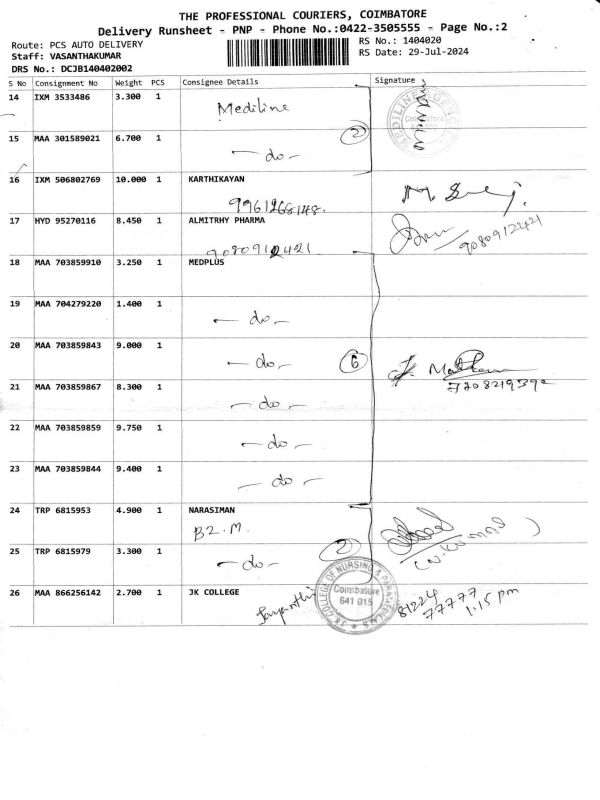 THE PROFESSIONAL COURIERS, COIMBATORE
Delivery Runsheet - PNP - Phone No.:0422-3505555 - Page No.:2
Route: PCS AUTO DELIVERY
RS No.: 1404020
Staff: VASANTHAKUMAR
RS Date: 29-Jul-2024
DRS No.: DCJB140402002
S No Consignment No Weight PCS Consignee Details Signature
14 IXM 3533486 3.300 1 Mediline
MEDILINE AGENCIES Coimbatore
15 MAA 301589021 6.700 1 - do - 2
16 IXM 506802769 10.000 1 KARTHIKAYAN
9961268148.
17 HYD 95270116 8.450 1 ALMITRHY PHARMA
9080912421 9080912421
18 MAA 703859910 3.250 1 MEDPLUS
19 MAA 704279220 1.400 1 - do -
20 MAA 703859843 9.000 1 - do - 6
7708219592
21 MAA 703859867 8.300 1 - do -
22 MAA 703859859 9.750 1 - do -
23 MAA 703859844 9.400 1 - do -
24 TRP 6815953 4.900 1 NARASIMAN
B2.M.
25 TRP 6815979 3.300 1 - do - 2
26 MAA 866256142 2.700 1 JK COLLEGE
Jayanthi
Coimbatore
641 015
81224
77777
1.15 pm